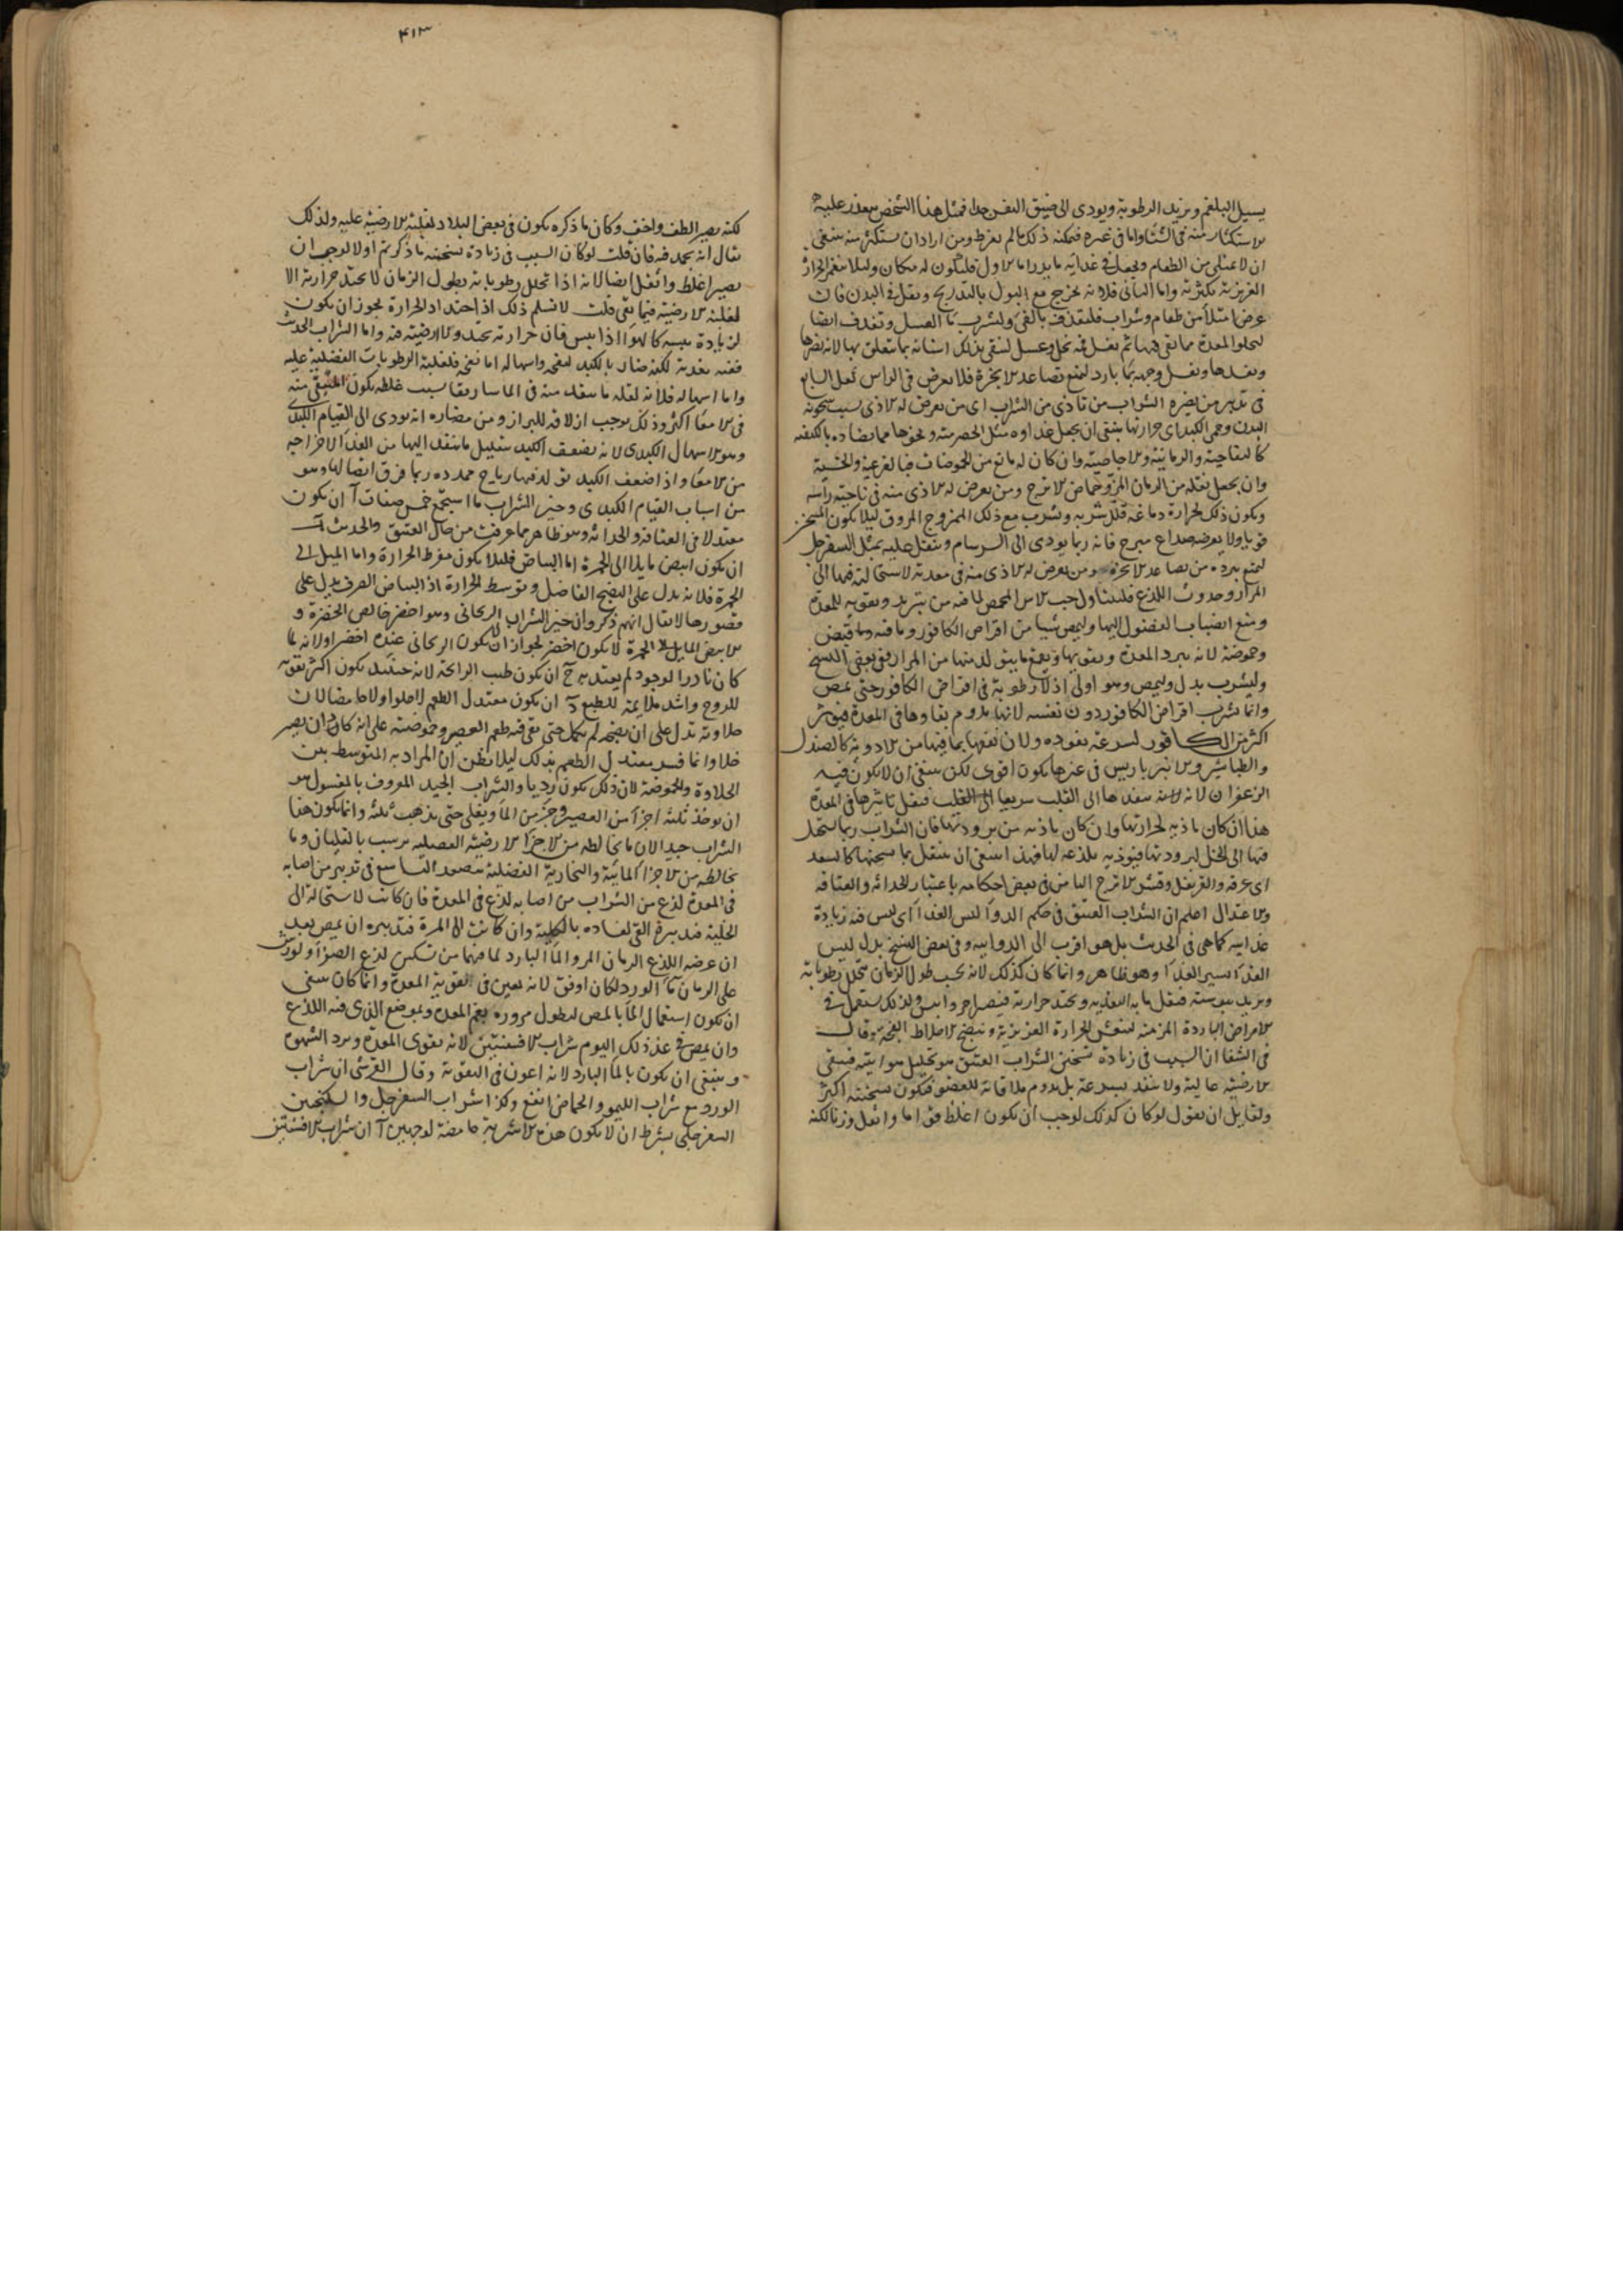 يسيل البلغم ويزيد الرطوبة ويودى الى ضيق النفس جدا فمثل هذا الشخص يتعذر عليه
الاستكثار منه فى الشتا واما فى غيره فيمكنه ذلك مالم يفرط ومن اراد ان يستكثر منه ينبغى
ان لا يمتلى من الطعام ويجعل فى غذايه ما يدر اما الاول فليكون له مكان وليلا ينغمر الحار
الغريزية بكثرته واما الثانى فلانه يخرج مع البول بالتدريج ويقل فى البدن فان
عرض امتلا من طعام وشراب فليقذف بالقى وليشرب ما العسل ويقذف ايضا
ليجلوا المعدة مما بقى فيها ثم يغسل فمه بخل وعسل لينقى بذلك اسنانه مما يتعلق بها لانه يضرها
ويفسدها ويغسل وجهه بما بارد ليمنع تصاعد الابخرة فلا يعرض فى الراس ثقل السابع
فى تدبير من يضره الشراب من تاذى من الشراب اى من يعرض له الاذى بسبب سخونة
البدن وحمى الكبد اى حرارتها ينبغى ان يجعل غذاوه مثل الحصرمية ونحوها مما يضاده بالكيفية
كالتفاحية والرمانية والاجاصية وان كان له مانع من الحموضات فبالقرعية والخسية
وان يجعل نقله من الرمان المز وحماض الاترج ومن يعرض له الاذى منه فى ناحية راسه
ويكون ذلك لحرارة دماغه قلل شربه وشرب مع ذلك الممزوج المروق ليلا يكون المبخر
قويا ولا يعرضه صداع مبرح فانه ربما يودى الى السرسام ويتنقل عليه بمثل السفرجل
ليمنع ببرده من تصاعد الابخرة ومن يعرض له الاذى منه فى معدته لاستحالته فيها الى
المرار وحدوث اللذع فليتناول حب الاس المحمص لما فيه من تبريد وتقوية للمعدة
ومنع انصباب الفضول اليها وليمص شيا من اقراص الكافور وما فيه قبض
وحموضة لانه يبرد المعدة ويقويها من المرار وفى بعض النسخ
وليشرب بدل وليمص وهو اولى اذ لا رطوبة فى اقراص الكافور حتى تمص
وانما يشرب اقراص الكافور دون نفسه لانها يدوم بقاوها فى المعدة فيوثر
اكثر من الكافور لسرعة نفوذه ولان نفعها بما فيها من الادوية كالصندل
والطباشير والانبرباريس فى غيرها يكون اقوى لكن ينبغى ان لا يكون فيه
الزعفران لانه ينفذها الى القلب سريعا فيقل تاثيرها فى المعدة
هذا ان كان تاذيه لحرارتها وان كان تاذيه من برودتها فان الشراب ربما يستحيل
فيها الى الخل لبرودتها فيوذيه بلذعه لها فهذا ينبغى ان يتنقل بما يسخنها كالسعد
اى عرقه والقرنفل وقشر الاترج الثامن فى بعض احكامه باعتبار الحداثة والعتاقة
والاعتدال اعلم ان الشراب العتيق فى حكم الدوا ليس الغذا اى ليس فيه زيادة
غذايية كما هى فى الحديث بل هو اقرب الى الدوايية وفى بعض النسخ بدل ليس
الغذا يسير الغذا وهو ظاهر وانما كان كذلك لانه بحسب طول الزمان تتحلل رطوباته
ويزيد يبوسته فيقل ما به التغذية ويحتد حرارته فيصير احر وايبس ولذلك يستعمل فى
الامراض الباردة المزمنة لينعش الحرارة الغريزية وينضج الاخلاط الفجة وقال
فى الشفا ان السبب فى زيادة تسخين الشراب العتيق هو تحليل هوائيته فيبقى
الارضية غالبة ولا ينفذ بسرعة بل يدوم ملاقاته للعضو فيكون تسخينه اكثر
ولقايل ان يقول لو كان كذلك لوجب ان يكون اغلظ قواما واثقل وزنا لكنه
۴۱۳
لكنه يصير الطف واخف وكان ما ذكره يكون فى بعض البلاد لغلبة الارضية عليه ولذلك
يقال انه يجمد فيه فان قلت لو كان السبب فى زيادة تسخينه ما ذكرتم اولا لوجب ان
يصير اغلظ واثقل ايضا لانه اذا تحلل رطوباته بطول الزمان لا يحتد حرارته الا
لغلبة الارضية فيما بقى قلت لا نسلم ذلك اذ احتداد الحرارة يجوز ان يكون
لزيادة يبسه كالهوا اذا يبس فان حرارته تحتد ولا ارضية فيه واما الشراب الحديث
ففيه تغذية لكنه ضار بالكبد لنفخه واسهاله اما نفخه فلغلبة الرطوبات الفضلية عليه
واما اسهاله فلانه لثقله ما ينفذ منه فى الماساريقا بسبب غلظه يكون المتبقى منه
فى الامعا اكثر وذلك يوجب ازلاقه للبراز ومن مضاره انه يودى الى القيام الكبدى
وهو الاسهال الكبدى لانه يضعف الكبد بتقليل ما ينفذ اليها من الغذا لاخراجه
من الامعا واذا ضعف الكبد تولد فيها رياح ممددة ربما فرق اتصالها وهو
من اسباب القيام الكبدى وخير الشراب ما اجتمع خمس صفات آ ان يكون
معتدلا فى العتاقة والحداثة وهو ظاهر مما عرفت من حال العتيق والحديث ب
ان يكون ابيض مايلا الى الحمرة اما البياض فليلا يكون مفرط الحرارة واما الميل الى
الحمرة فلانه يدل على النضج الفاضل وتوسط الحرارة اذ البياض الصرف يدل على
قصورها لا يقال انهم ذكروا ان خير الشراب الريحانى وهو اخضر خالص الخضرة و
الابيض المايل الى الحمرة لا يكون اخضر لجواز ان لا يكون الريحانى عنده اخضر اولا نه لما
كان نادر الوجود لم يعتد به ج ان يكون طيب الرائحة لانه حينئذ يكون اكثر تقوية
للروح واشد ملايمة للطبع د ان يكون معتدل الطعم لا حلوا ولا حامضا لان
حلاوته تدل على ان نضجه لم يكمل حتى بقى فيه طعم العصير وحموضته على انه كاد ان يصير
خلا وانما فسر معتدل الطعم بذلك ليلا يظن ان المراد به المتوسط بين
الحلاوة والحموضة لان ذلك يكون رديا والشراب الجيد المعروف بالمغسول هو
ان يوخذ ثلثة اجزا من العصير وجز من الما ويغلى حتى يذهب ثلثه وانما يكون هذا
الشراب جيدا لان ما يخالطه من الاجزا الارضية الفضلية يرسب بالغليان وما
يخالطه من الاجزا المائية والبخارية الفضلية يتصعد التاسع فى تدبير من اصابه
فى المعدة لذع من الشراب من اصابه لذع فى المعدة فان كانت لاستحالته الى
الخلية فتدبيره القى لفساده بالكلية وان كانت الى المرة فتدبيره ان يمص بعد
ان عرضه اللذع الرمان المز والما البارد لما فيهما من تسكين لذع الصفرا ولو رش
على الرمان ما الورد لكان اوفق لانه يعين فى تقوية المعدة وانما كان ينبغى
ان يكون استعمال الما بالمص ليطول مروره بفم المعدة وبموضع الذى فيه اللذع
وان يمص فى غد ذلك اليوم شراب الافسنتين لانه يقوى المعدة ويرد الشهوة
وينبغى ان يكون بالما البارد لانه اعون فى التقوية وقال القرشى ان شراب
الورد مع شراب الليمو والحماض انفع وكذا شراب السفرجل والسكنجبين
السفرجلى بشرط ان لا يكون هذه الاشربة حامضة لوجهين آ ان شراب الافسنتين